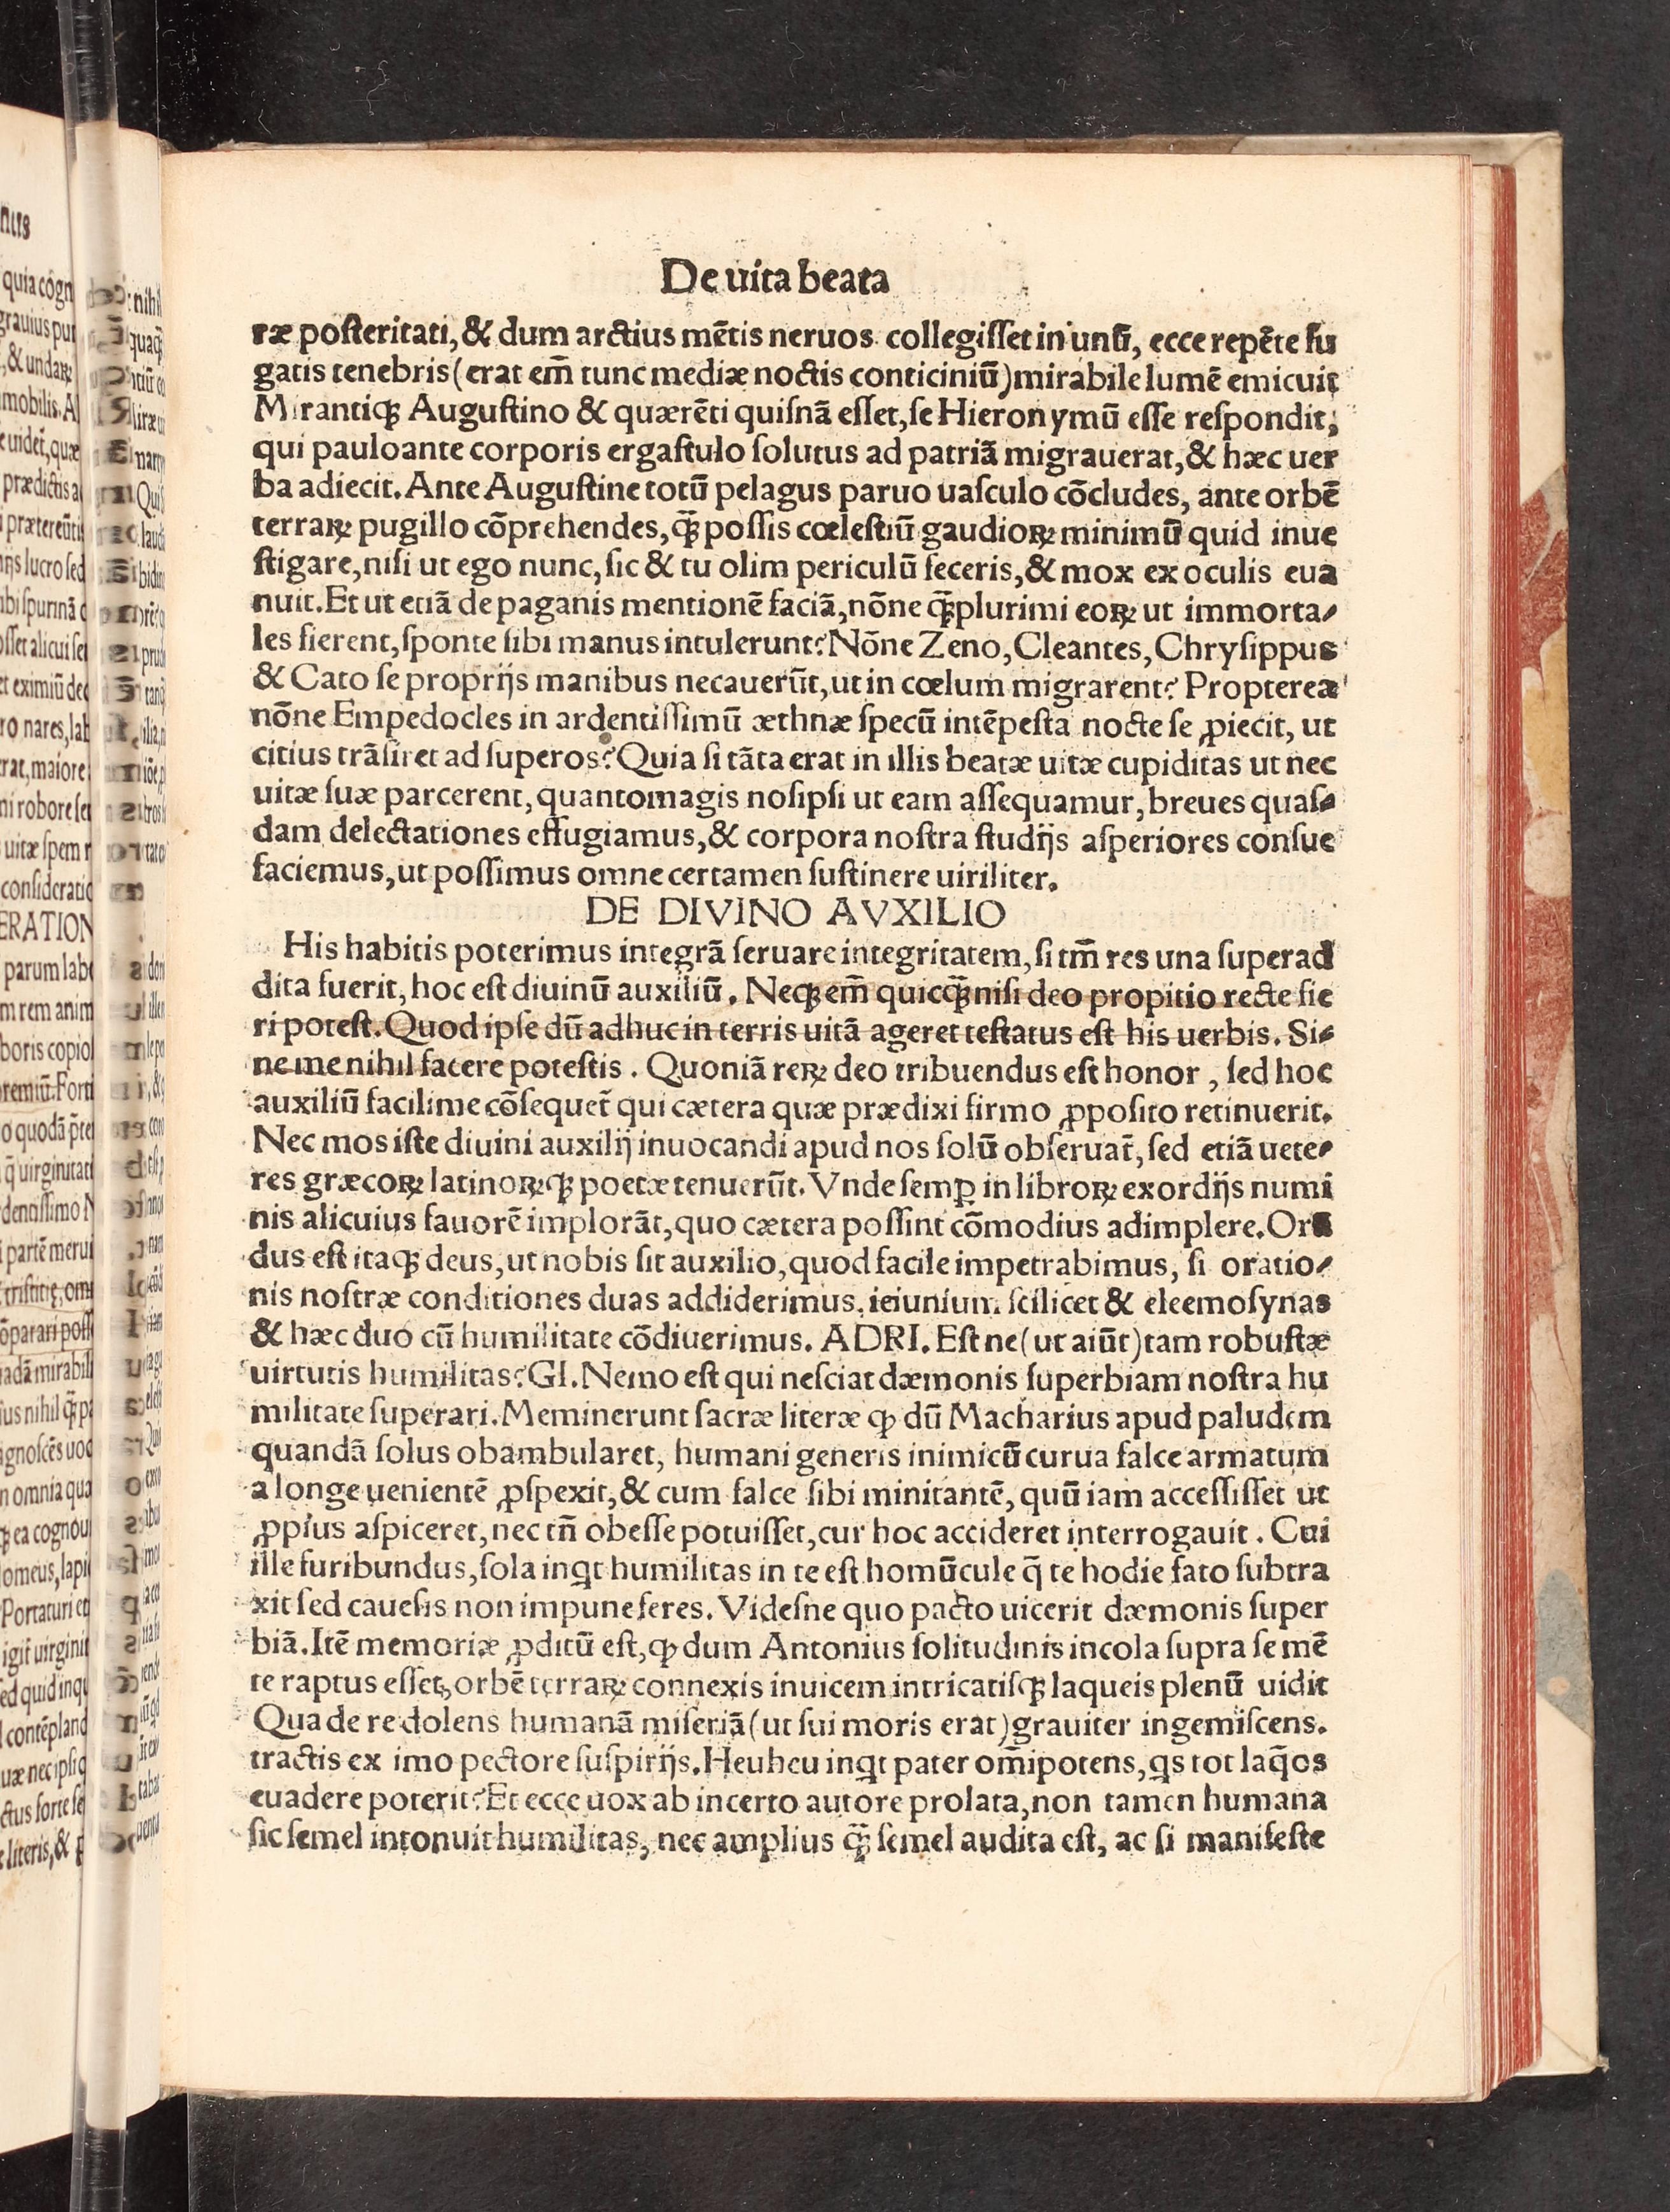 De uita beata
ræ posteritati, & dum arctius mẽtis neruos collegisset in unũ, ecce repẽte fu
gatis tenebris (erat em̃ tunc mediæ noctis conticiniũ) mirabile lumẽ emicuit
Mirantiqꝫ Augustino & quærẽti quisnã esset, se Hieronymũ esse respondit,
qui pauloante corporis ergastulo solutus ad patriã migrauerat, & hæc uer
ba adiecit. Ante Augustine totũ pelagus paruo uasculo cõcludes, ante orbẽ
terraꝝ pugillo cõprehendes, qꝫ̃ possis cœlestiũ gaudioꝝ minimũ quid inue
stigare, nisi ut ego nunc, sic & tu olim periculũ feceris, & mox ex oculis eua
nuit. Et ut etiã de paganis mentionẽ faciã, nõne qꝫ̃plurimi eoꝝ ut immorta⸗
les fierent, sponte sibi manus intulerunt? Nõne Zeno, Cleantes, Chrysippus
& Cato se proprijs manibus necauerũt, ut in cœlum migrarent? Propterea
nõne Empedocles in ardentissimũ æthnæ specũ intẽpesta nocte se ꝓiecit, ut
citius trãsiret ad superos? Quia si tãta erat in illis beatæ uitæ cupiditas ut nec
uitæ suæ parcerent, quantomagis nosipsi ut eam assequamur, breues quas⸗
dam delectationes effugiamus, & corpora nostra studijs asperiores consue
faciemus, ut possimus omne certamen sustinere uiriliter.
DE DIVINO AVXILIO
His habitis poterimus integrã seruare integritatem, si tm̃ res una superad
dita fuerit, hoc est diuinũ auxiliũ. Neqꝫ em̃ quicqꝫ̃ nisi deo propitio recte fie
ri potest. Quod ipse dũ adhuc in terris uitã ageret testatus est his uerbis. Si⸗
ne me nihil facere potestis. Quoniã reꝝ deo tribuendus est honor, sed hoc
auxiliũ facilime cõsequet̃ qui cætera quæ prædixi firmo ꝓposito retinuerit.
Nec mos iste diuini auxilij inuocandi apud nos solũ obseruat̃, sed etiã uete⸗
res græcoꝝ latinoꝝqꝫ poetæ tenuerũt. Vnde semꝑ in libroꝝ exordijs numi
nis alicuius fauorẽ implorãt, quo cætera possint cõmodius adimplere. Orã
dus est itaqꝫ deus, ut nobis sit auxilio, quod facile impetrabimus, si oratio⸗
nis nostræ conditiones duas addiderimus, ieiunium scilicet & eleemosynas
& hæc duo cũ humilitate cõdiuerimus. ADRI. Est ne (ut aiũt) tam robustæ
uirtutis humilitas? GI. Nemo est qui nesciat dæmonis superbiam nostra hu
militate superari. Meminerunt sacræ literæ ꝙ dũ Macharius apud paludem
quandã solus obambularet, humani generis inimicũ curua falce armatum
a longe uenientẽ ꝓspexit, & cum falce sibi minitantẽ, quũ iam accessisset ut
ꝓpius aspiceret, nec tñ obesse potuisset, cur hoc accideret interrogauit. Cui
ille furibundus, sola inqt humilitas in te est homũcule q̃ te hodie fato subtra
xit sed cauesis non impuneferes. Videsne quo pacto uicerit dæmonis super
biã. Itẽ memoriæ ꝓditũ est, ꝙ dum Antonius solitudinis incola supra se mẽ
te raptus esset, orbẽ terraꝝ connexis inuicem intricatisqꝫ laqueis plenũ uidit
Qua de re dolens humanã miseriã (ut sui moris erat) grauiter ingemiscens.
tractis ex imo pectore suspirijs. Heuheu inqt pater om̃ipotens, qs tot laq̃os
euadere poterit? Et ecce uox ab incerto autore prolata, non tamen humana
sic semel intonuit humilitas, nec amplius qꝫ̃ semel audita est, ac si manifeste